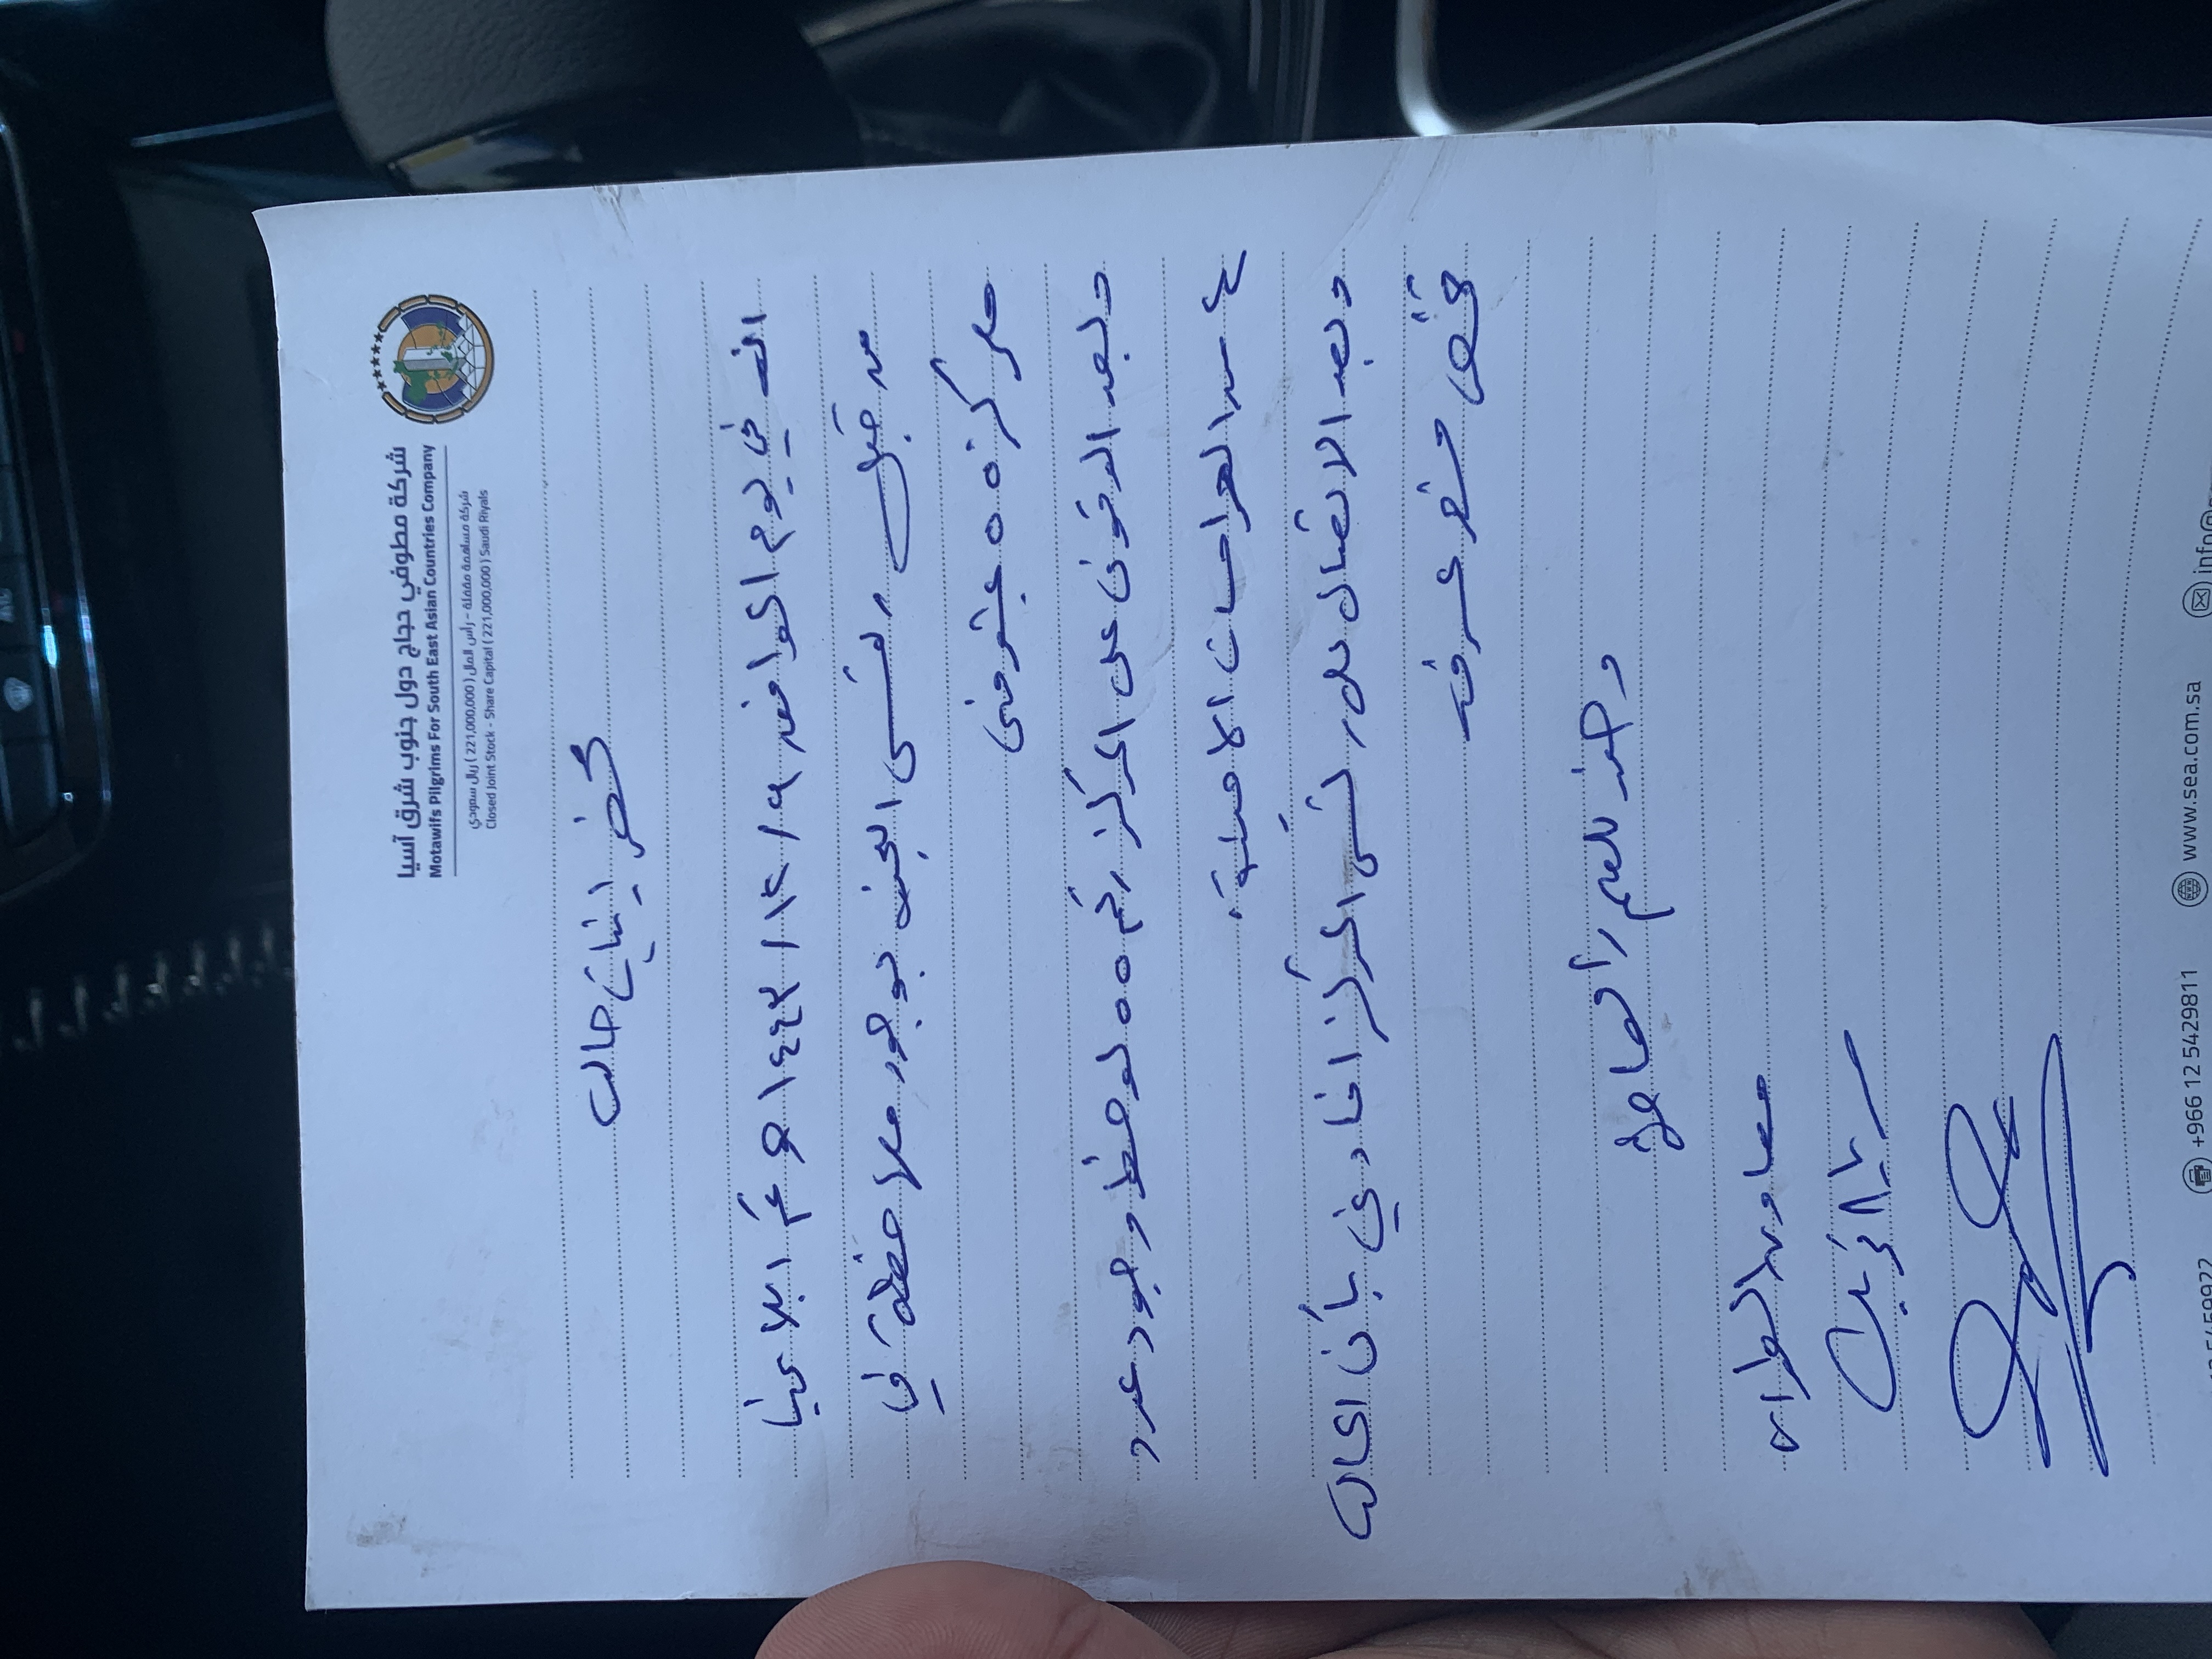 شركة مطوفي حجاج دول جنوب شرق آسيا
Motawifs Pilgrims For South East Asian Countries Company
شركة مساهمة مقفلة - رأس المال ( 221,000,000 ) ريال سعودي
Closed Joint Stock - Share Capital ( 221,000,000 ) Saudi Riyals
محضر اثبات حاله
انه في يوم الموافق ٩ / ١٢ / ١٤٤٣ هـ تم ابلاغنا
من قبل رئيس اللجنه بوجود ملاحظة في
مركز ٥٥ بمشعر منى
وبعد الوقوف على المركز رقم ٥٥ لوحظ وجود عدد
٤ من الحراسات الامنية.
وبعد الاتصال على رئيس المركز افادني بأن الحاله
تخص مشعر عرفه
وهذه للعلم والاحاطة
معاون الطوارئ
+966 12 5429811
www.sea.com.sa
info@